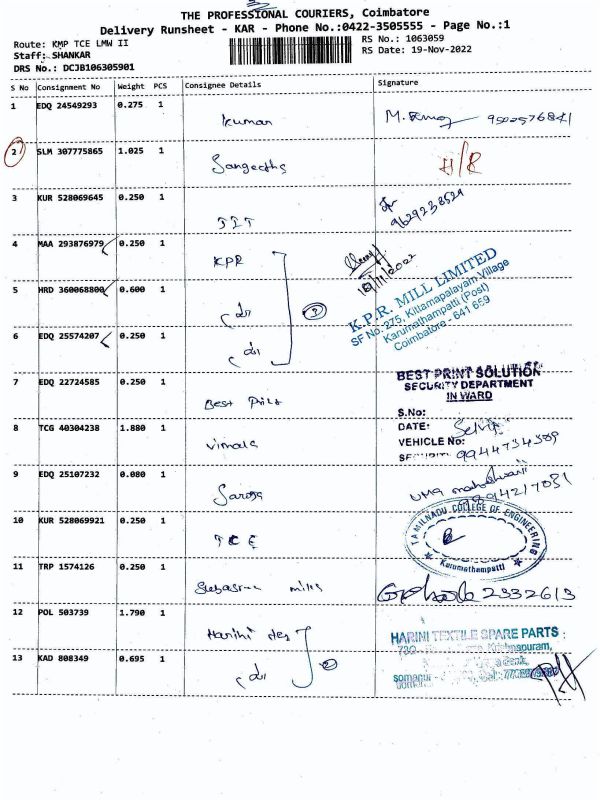 THE PROFESSIONAL COURIERS, Coimbatore
Delivery Runsheet - KAR - Phone No.:0422-3505555 - Page No.:1
Route: KMP TCE LMW II
RS No.: 1063059
Staff: SHANKAR
RS Date: 19-Nov-2022
DRS No.: DCJB106305901
S No Consignment No Weight PCS Consignee Details Signature
1 EDQ 24549293 0.275 1 Kumar 9502576841
2 SLM 307775865 1.025 1 Sangeetha
3 KUR 528069645 0.250 1 9629238529
4 MAA 293876979 0.250 1 KPR
5 HRD 360068800 0.600 1 do 3
6 EDQ 25574207 0.250 1 do
K.P.R. MILL LIMITED
SF No. 275, Kittampalayam Village
Karumathampatti (Post)
Coimbatore - 641 659
7 EDQ 22724585 0.250 1 Best Print
BEST PRINT SOLUTION
SECURITY DEPARTMENT
IN WARD
S.No:
DATE:
VEHICLE No:
SECURITY 9944734389
8 TCG 40304238 1.880 1 Vimala
9 EDQ 25107232 0.080 1 Saroja
10 KUR 528069921 0.250 1 TCE
TAMILNADU COLLEGE OF ENGINEERING
Karumathampatti
11 TRP 1574126 0.250 1 mills 2332613
12 POL 503739 1.790 1 Harini tex
HARINI TEXTILE SPARE PARTS
13 KAD 808349 0.695 1 do 2